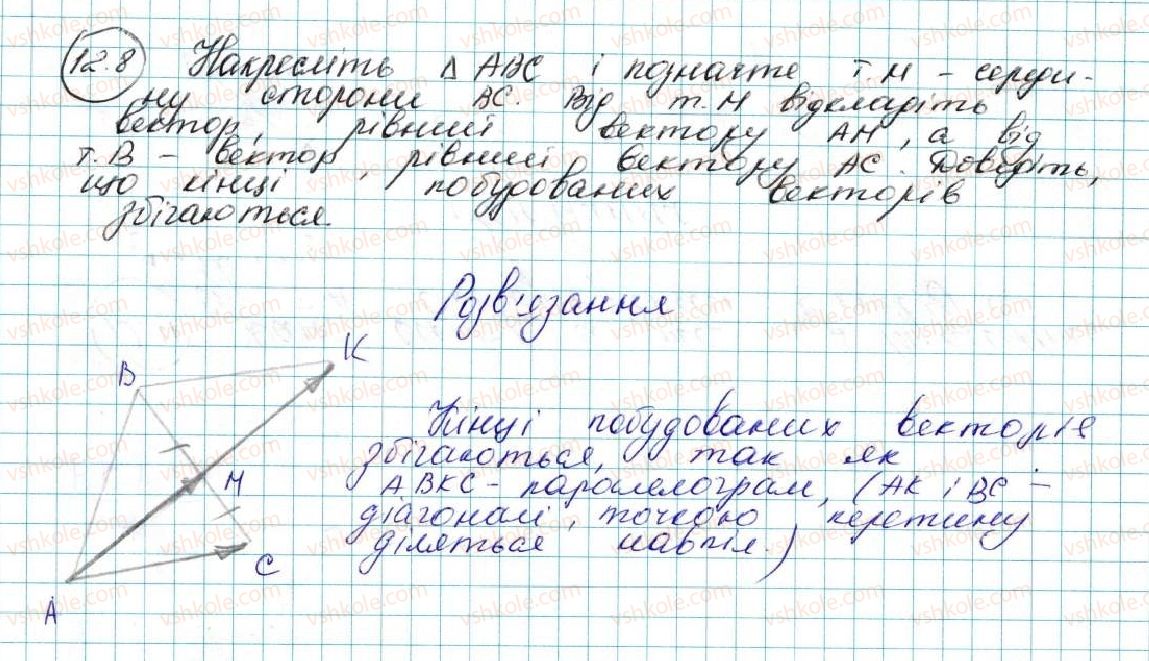 12.8 Накресліть Δ ABC і позначте т. M – середи-
ну сторони BC. Від т. M відкладіть
вектор, рівний вектору AM, а від
т. B – вектор, рівний вектору AC. Доведіть,
що кінці побудованих векторів
збігаються.
Розв'язання
B
K
M
C
A
Кінці побудованих векторів
збігаються, так як
ABKC – паралелограм, (AK і BC –
діагоналі, точкою перетину
діляться навпіл.)
vshkole.com